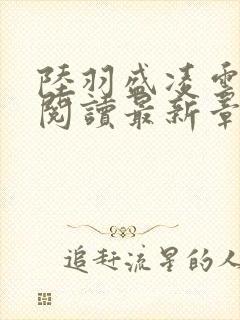 陸羽盛凌雲
閱讀最新章
追赶流星的人